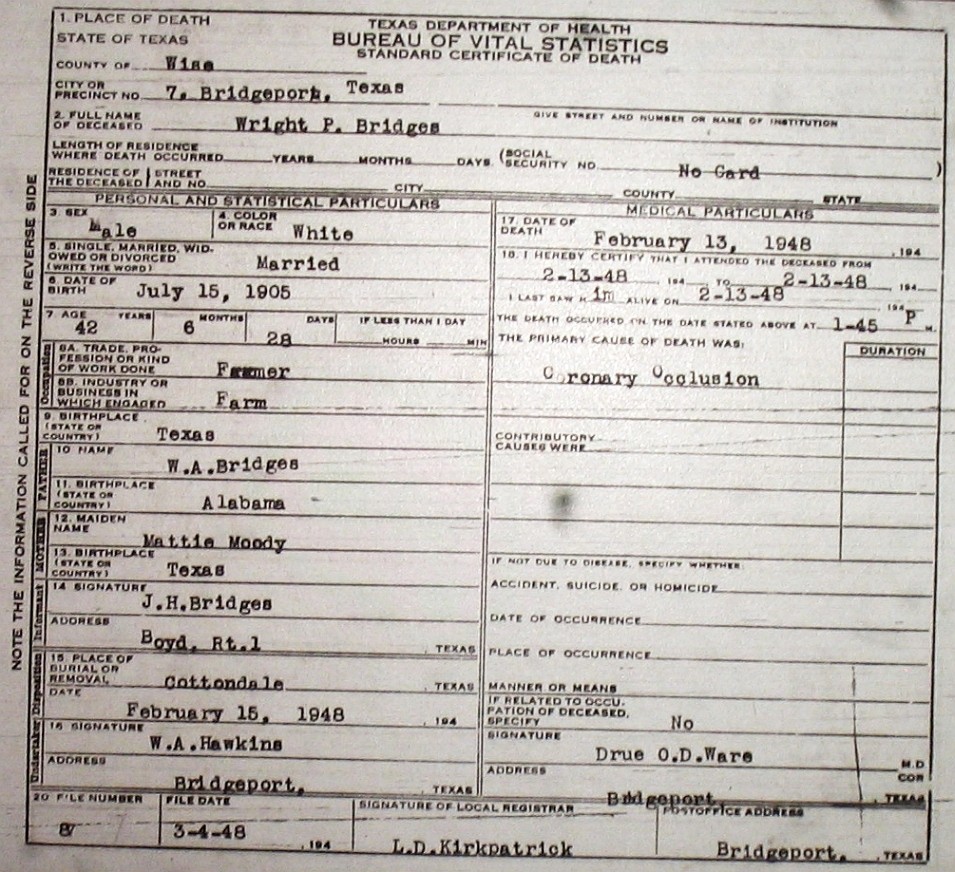 1. PLACE OF DEATH
TEXAS DEPARTMENT OF HEALTH
STATE OF TEXAS
BUREAU OF VITAL STATISTICS
STANDARD CERTIFICATE OF DEATH
COUNTY OF Wise
CITY OR
PRECINCT NO. 7. Bridgeport, Texas
GIVE STREET AND NUMBER OR NAME OF INSTITUTION
2. FULL NAME
OF DECEASED Wright P. Bridges
LENGTH OF RESIDENCE
WHERE DEATH OCCURRED YEARS MONTHS DAYS. (SOCIAL
SECURITY NO. No Card )
RESIDENCE OF STREET
THE DECEASED AND NO. CITY COUNTY STATE
NOTE THE INFORMATION CALLED FOR ON THE REVERSE SIDE
PERSONAL AND STATISTICAL PARTICULARS
3. SEX Male
4. COLOR
OR RACE White
5. SINGLE, MARRIED, WID-
OWED OR DIVORCED
(WRITE THE WORD) Married
6. DATE OF
BIRTH July 15, 1905
7 AGE YEARS MONTHS DAYS IF LESS THAN 1 DAY
42 6 28 HOURS MIN
Occupation
8A. TRADE, PRO-
FESSION OR KIND
OF WORK DONE Farmer
8B. INDUSTRY OR
BUSINESS IN
WHICH ENGAGED Farm
9. BIRTHPLACE
(STATE OR
COUNTRY) Texas
FATHER
10 NAME
W.A.Bridges
11. BIRTHPLACE
(STATE OR
COUNTRY) Alabama
MOTHER
12. MAIDEN
NAME Mattie Moody
13. BIRTHPLACE
(STATE OR
COUNTRY) Texas
Informant
14 SIGNATURE
J.H.Bridges
ADDRESS
Boyd, Rt.1 , TEXAS
Disposition
15. PLACE OF
BURIAL OR
REMOVAL Cottondale , TEXAS
DATE
February 15, 1948 , 194
Undertaker
16 SIGNATURE
W.A.Hawkins
ADDRESS
Bridgeport, , TEXAS
MEDICAL PARTICULARS
17. DATE OF
DEATH February 13, 1948 , 194
18. I HEREBY CERTIFY THAT I ATTENDED THE DECEASED FROM
2-13-48 194 TO 2-13-48 , 194
I LAST SAW H im ALIVE ON 2-13-48 194
THE DEATH OCCURRED ON THE DATE STATED ABOVE AT 1-45 P M.
THE PRIMARY CAUSE OF DEATH WAS:
DURATION
Coronary Occlusion
CONTRIBUTORY
CAUSES WERE
IF NOT DUE TO DISEASE, SPECIFY WHETHER:
ACCIDENT, SUICIDE, OR HOMICIDE
DATE OF OCCURRENCE
PLACE OF OCCURRENCE
MANNER OR MEANS
IF RELATED TO OCCU-
PATION OF DECEASED,
SPECIFY No
SIGNATURE
Drue O.D.Ware M.D
ADDRESS COR
Bridgeport, , TEXAS
20 FILE NUMBER FILE DATE SIGNATURE OF LOCAL REGISTRAR POSTOFFICE ADDRESS
8 3-4-48 , 194 L.D.Kirkpatrick Bridgeport, , TEXAS